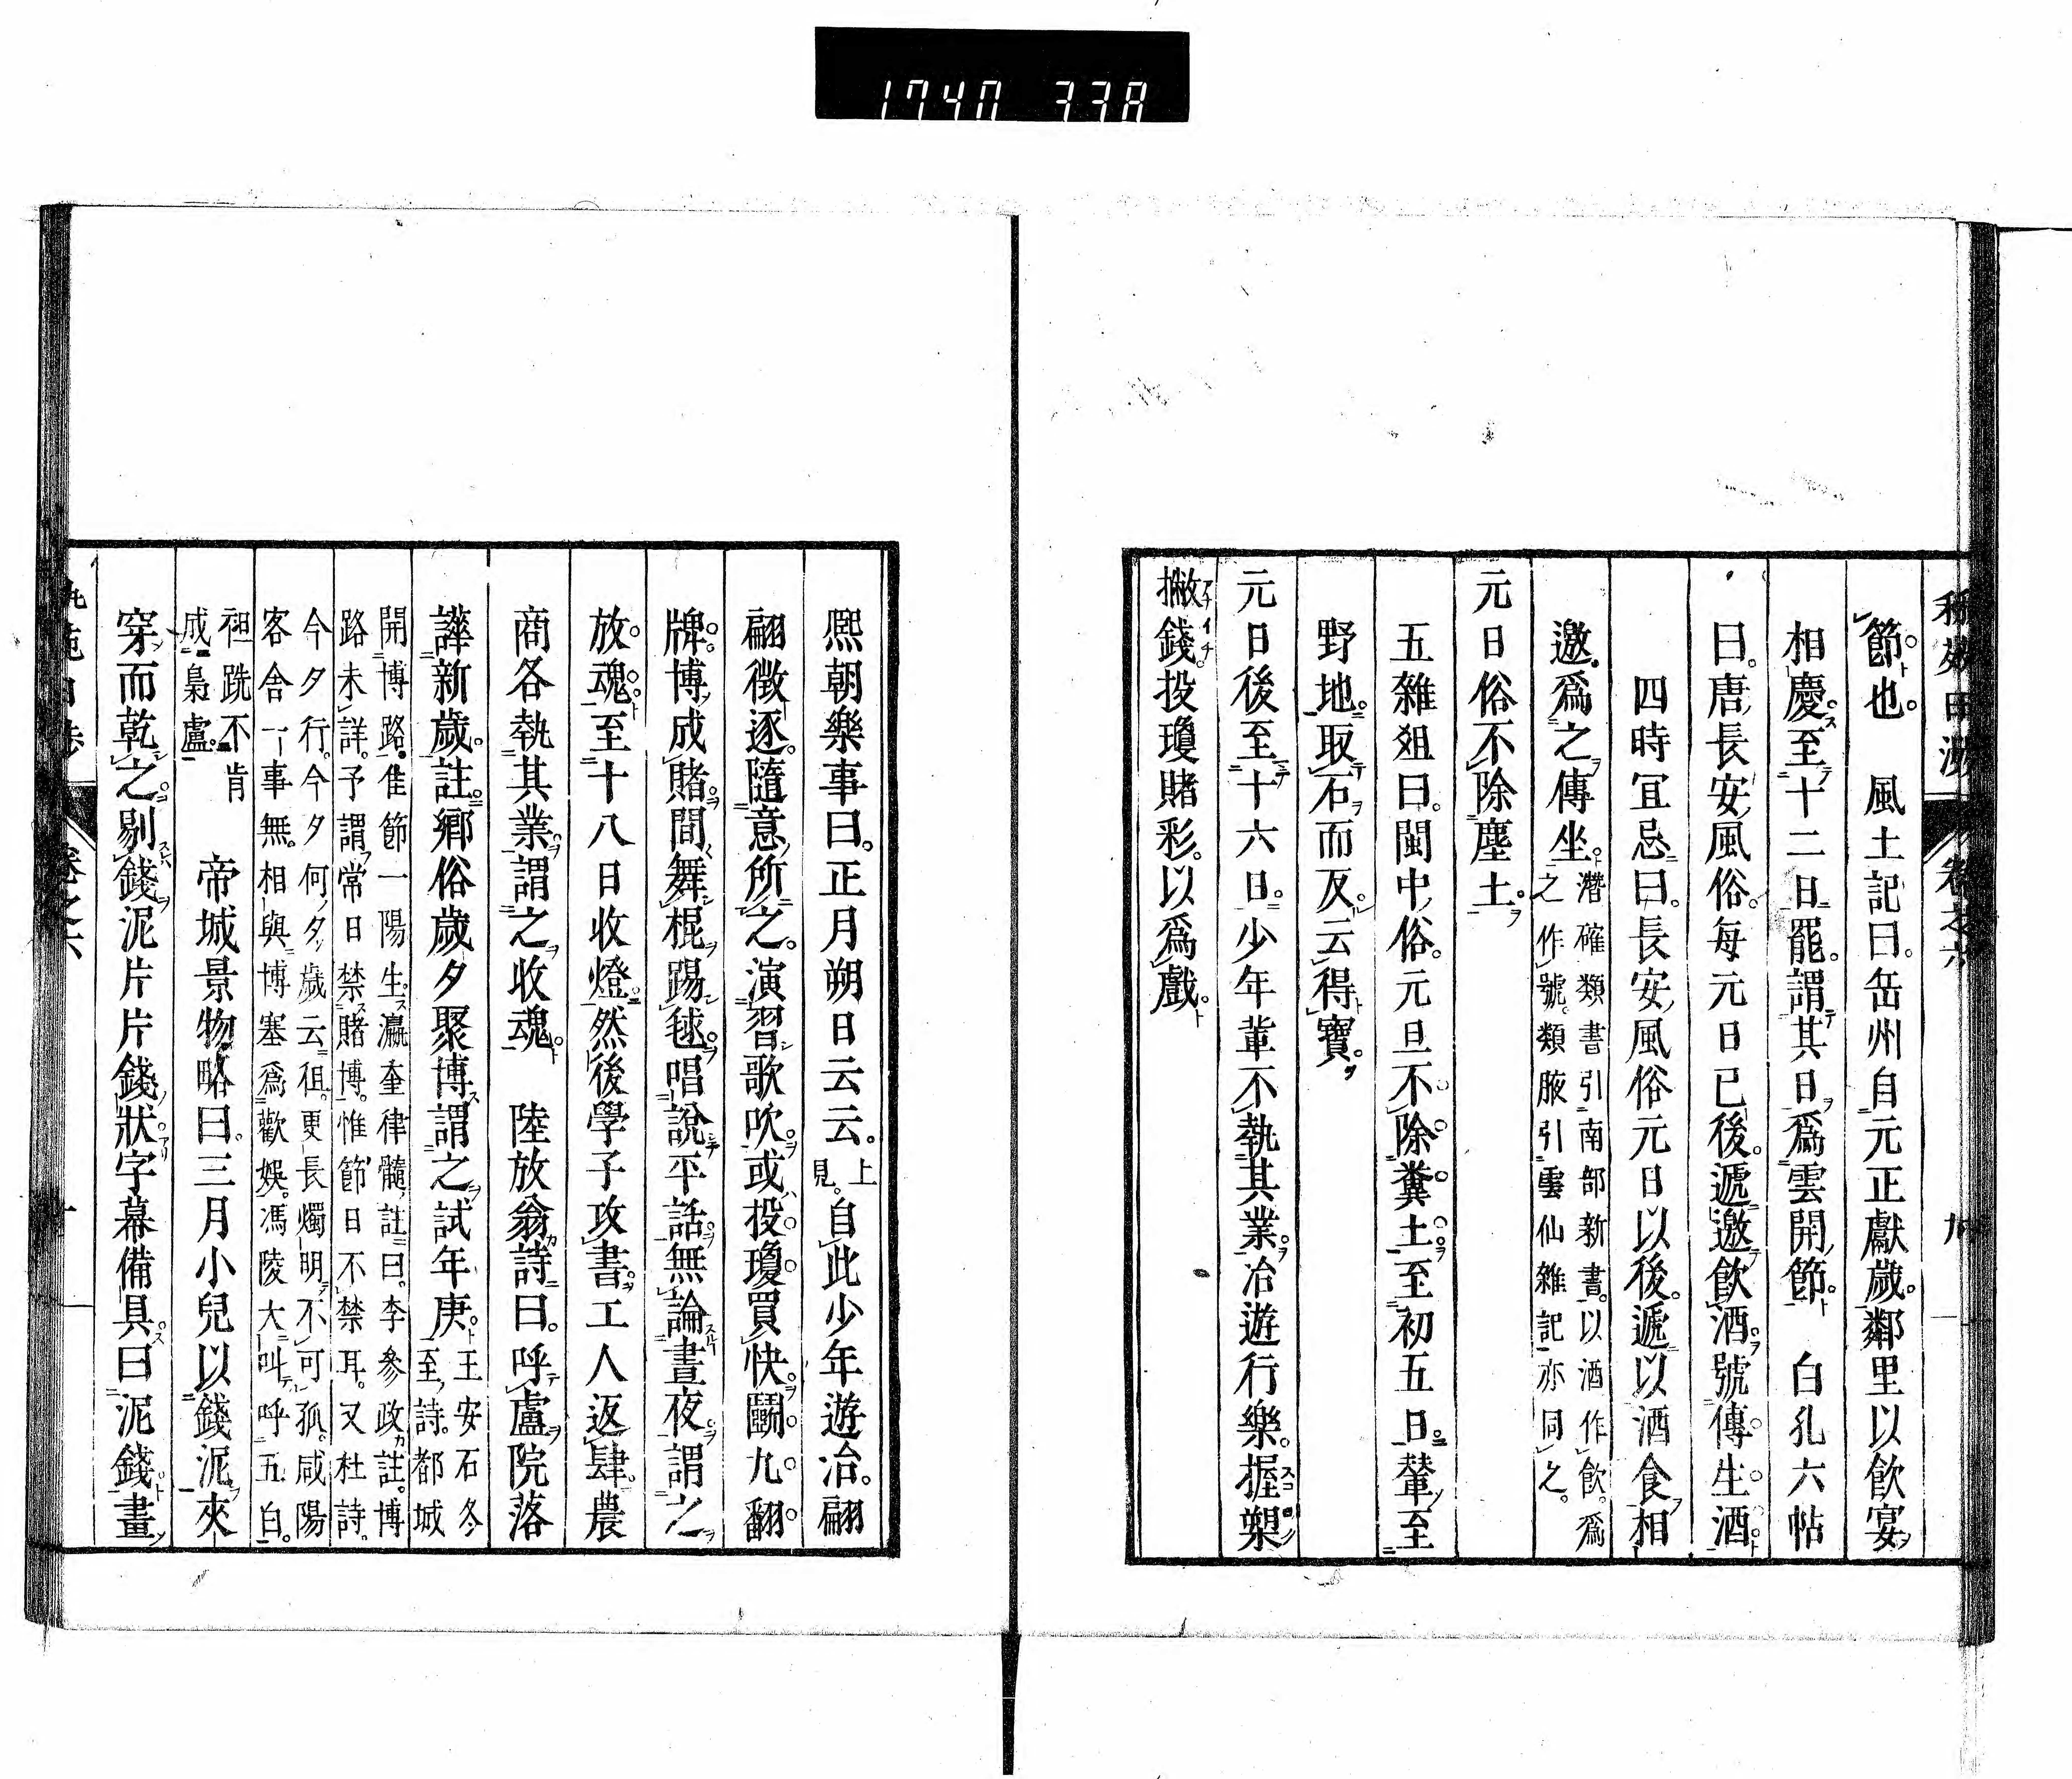 1740 338
卷之六 九
節也。 風土記曰。岳州自元正獻歲。鄰里以飮宴
相慶。至十二日罷。謂其日爲雲開節。 白孔六帖
曰。唐長安風俗。每元日已後。遞邀飮酒。號傳生酒
四時宜忌曰。長安風俗元日以後。遞以酒食相
邀。爲之傳坐。潛確類書引南部新書。以酒作飮。爲之作號。類腋引雲仙雜記亦同之。
元日俗不除塵土。
五雜俎曰。閩中俗。元旦不除糞土。至初五日。輦至
野地。取石而反。云得寶。
元日後至十六日。少年輩不執其業。冶遊行樂。握槊
撇錢。投瓊賭彩。以爲戲。
熙朝樂事曰。正月朔日云云。見上。自此少年遊冶。翩
翩徵逐。隨意所之。演習歌吹。或投瓊買快。鬭九翻
牌。博成賭間。舞棍踢毬。唱說平話。無論晝夜。謂之
放魂。至十八日收燈。然後學子攻書。工人返肆。農
商各執其業。謂之收魂。 陸放翁詩曰。呼盧院落
譁新歲。註。鄉俗歲夕聚博。謂之試年庚。王安石冬至詩。都城
開博路。隹節一陽生。瀛奎律髓註曰。李參政註。博路未詳。予謂常日禁賭博。惟節日不禁耳。又杜詩。
今夕行。今夕何夕歲云徂。更長燭明不可孤。咸陽客舍一事無。相與博塞爲歡娛。馮陵大叫呼五白。
袒跣不肯成梟盧。 帝城景物略曰。三月小兒以錢泥夾
穿而乾之。剔錢泥片片錢狀字幕備具。曰泥錢。畫
卷之六